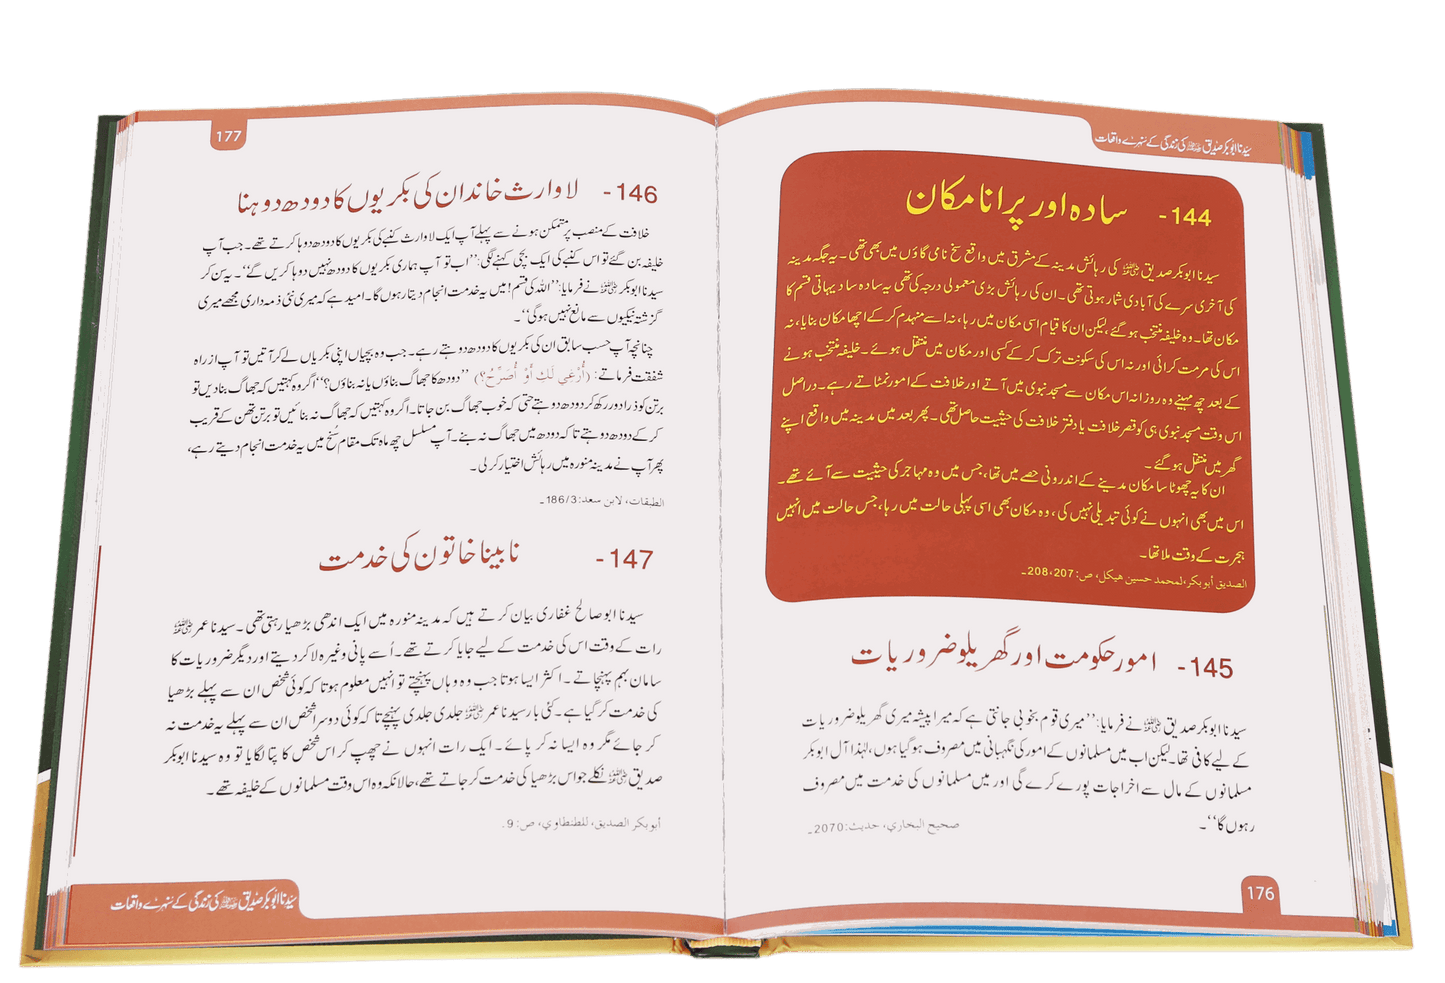 سیدنا ابوبکر صدیق رضی اللہ عنہ کی زندگی کے سنہرے واقعات
144- سادہ اور پرانا مکان
سیدنا ابوبکر صدیق رضی اللہ عنہ کی رہائش مدینہ کے مشرق میں واقع سخ نامی گاؤں میں بھی تھی۔ یہ جگہ مدینہ
کی آخری سرے کی آبادی شمار ہوتی تھی۔ ان کی رہائش بڑی معمولی درجہ کی تھی یہ سادہ سا دیہاتی قسم کا
مکان تھا۔ وہ خلیفہ منتخب ہو گئے، لیکن ان کا قیام اسی مکان میں رہا، نہ اسے منہدم کر کے اچھا مکان بنایا، نہ
اس کی مرمت کرائی اور نہ اس کی سکونت ترک کر کے کسی اور مکان میں منتقل ہوئے۔ خلیفہ منتخب ہونے
کے بعد چھ مہینے وہ روزانہ اس مکان سے مسجد نبوی میں آتے اور خلافت کے امور نمٹاتے رہے۔ دراصل
اس وقت مسجد نبوی ہی کو قصر خلافت یا دفتر خلافت کی حیثیت حاصل تھی۔ پھر بعد میں مدینہ میں واقع اپنے
گھر میں منتقل ہو گئے۔
ان کا یہ چھوٹا سا مکان مدینے کے اندرونی حصے میں تھا، جس میں وہ مہاجر کی حیثیت سے آئے تھے۔
اس میں بھی انہوں نے کوئی تبدیلی نہیں کی، وہ مکان بھی اسی پہلی حالت میں رہا، جس حالت میں انہیں
ہجرت کے وقت ملا تھا۔
الصديق أبوبكر، لمحمد حسين هيكل، ص: 207، 208۔
145- امور حکومت اور گھریلو ضروریات
سیدنا ابوبکر صدیق رضی اللہ عنہ نے فرمایا: ’’میری قوم بخوبی جانتی ہے کہ میرا پیشہ میری گھریلو ضروریات
کے لیے کافی تھا۔ لیکن اب میں مسلمانوں کے امور کی نگہبانی میں مصروف ہو گیا ہوں، لہٰذا آل ابوبکر
مسلمانوں کے مال سے اخراجات پورے کرے گی اور میں مسلمانوں کی خدمت میں مصروف
رہوں گا‘‘۔
صحيح البخاري، حديث: 2070۔
176
177
146- لاوارث خاندان کی بکریوں کا دودھ دوہنا
خلافت کے منصب پر متمکن ہونے سے پہلے آپ ایک لاوارث کنبے کی بکریوں کا دودھ دوہا کرتے تھے۔ جب آپ
خلیفہ بن گئے تو اس کنبے کی ایک بچی کہنے لگی: ’’اب تو آپ ہماری بکریوں کا دودھ نہیں دوہا کریں گے‘‘۔ یہ سن کر
سیدنا ابوبکر رضی اللہ عنہ نے فرمایا: ’’اللہ کی قسم! میں یہ خدمت انجام دیتا رہوں گا۔ امید ہے کہ میری نئی ذمہ داری مجھے میری
گزشتہ نیکیوں سے مانع نہیں ہو گی‘‘۔
چنانچہ آپ حسب سابق ان کی بکریوں کا دودھ دوہتے رہے۔ جب وہ بچیاں اپنی بکریاں لے کر آتیں تو آپ از راہ
شفقت فرماتے: (أُرْغِي لَكِ أَوْ أُصَرِّحُ؟) ’’دودھ کا جھاگ بناؤں یا نہ بناؤں؟‘‘ اگر وہ کہتیں کہ جھاگ بنا دیں تو
برتن کو ذرا دور رکھ کر دودھ دوہتے حتی کہ خوب جھاگ بن جاتا۔ اگر وہ کہتیں کہ جھاگ نہ بنائیں تو برتن تھن کے قریب
کر کے دودھ دوہتے تا کہ دودھ میں جھاگ نہ بنے۔ آپ مسلسل چھ ماہ تک مقام سُنح میں یہ خدمت انجام دیتے رہے،
پھر آپ نے مدینہ منورہ میں رہائش اختیار کر لی۔
الطبقات، لابن سعد: 186/3۔
147- نابینا خاتون کی خدمت
سیدنا ابو صالح غفاری بیان کرتے ہیں کہ مدینہ منورہ میں ایک اندھی بڑھیا رہتی تھی۔ سیدنا عمر رضی اللہ عنہ
رات کے وقت اس کی خدمت کے لیے جایا کرتے تھے۔ اُسے پانی وغیرہ لا کر دیتے اور دیگر ضروریات کا
سامان بہم پہنچاتے۔ اکثر ایسا ہوتا جب وہ وہاں پہنچتے تو انہیں معلوم ہوتا کہ کوئی شخص ان سے پہلے بڑھیا
کی خدمت کر گیا ہے۔ کئی بار سیدنا عمر رضی اللہ عنہ جلدی جلدی پہنچے تا کہ کوئی دوسرا شخص ان سے پہلے یہ خدمت نہ
کر جائے مگر وہ ایسا نہ کر پائے۔ ایک رات انہوں نے چھپ کر اس شخص کا پتا لگایا تو وہ سیدنا ابوبکر
صدیق رضی اللہ عنہ نکلے جو اس بڑھیا کی خدمت کر جاتے تھے، حالانکہ وہ اس وقت مسلمانوں کے خلیفہ تھے۔
أبوبكر الصديق، للطنطاوي، ص: 9.
سیدنا ابوبکر صدیق رضی اللہ عنہ کی زندگی کے سنہرے واقعات